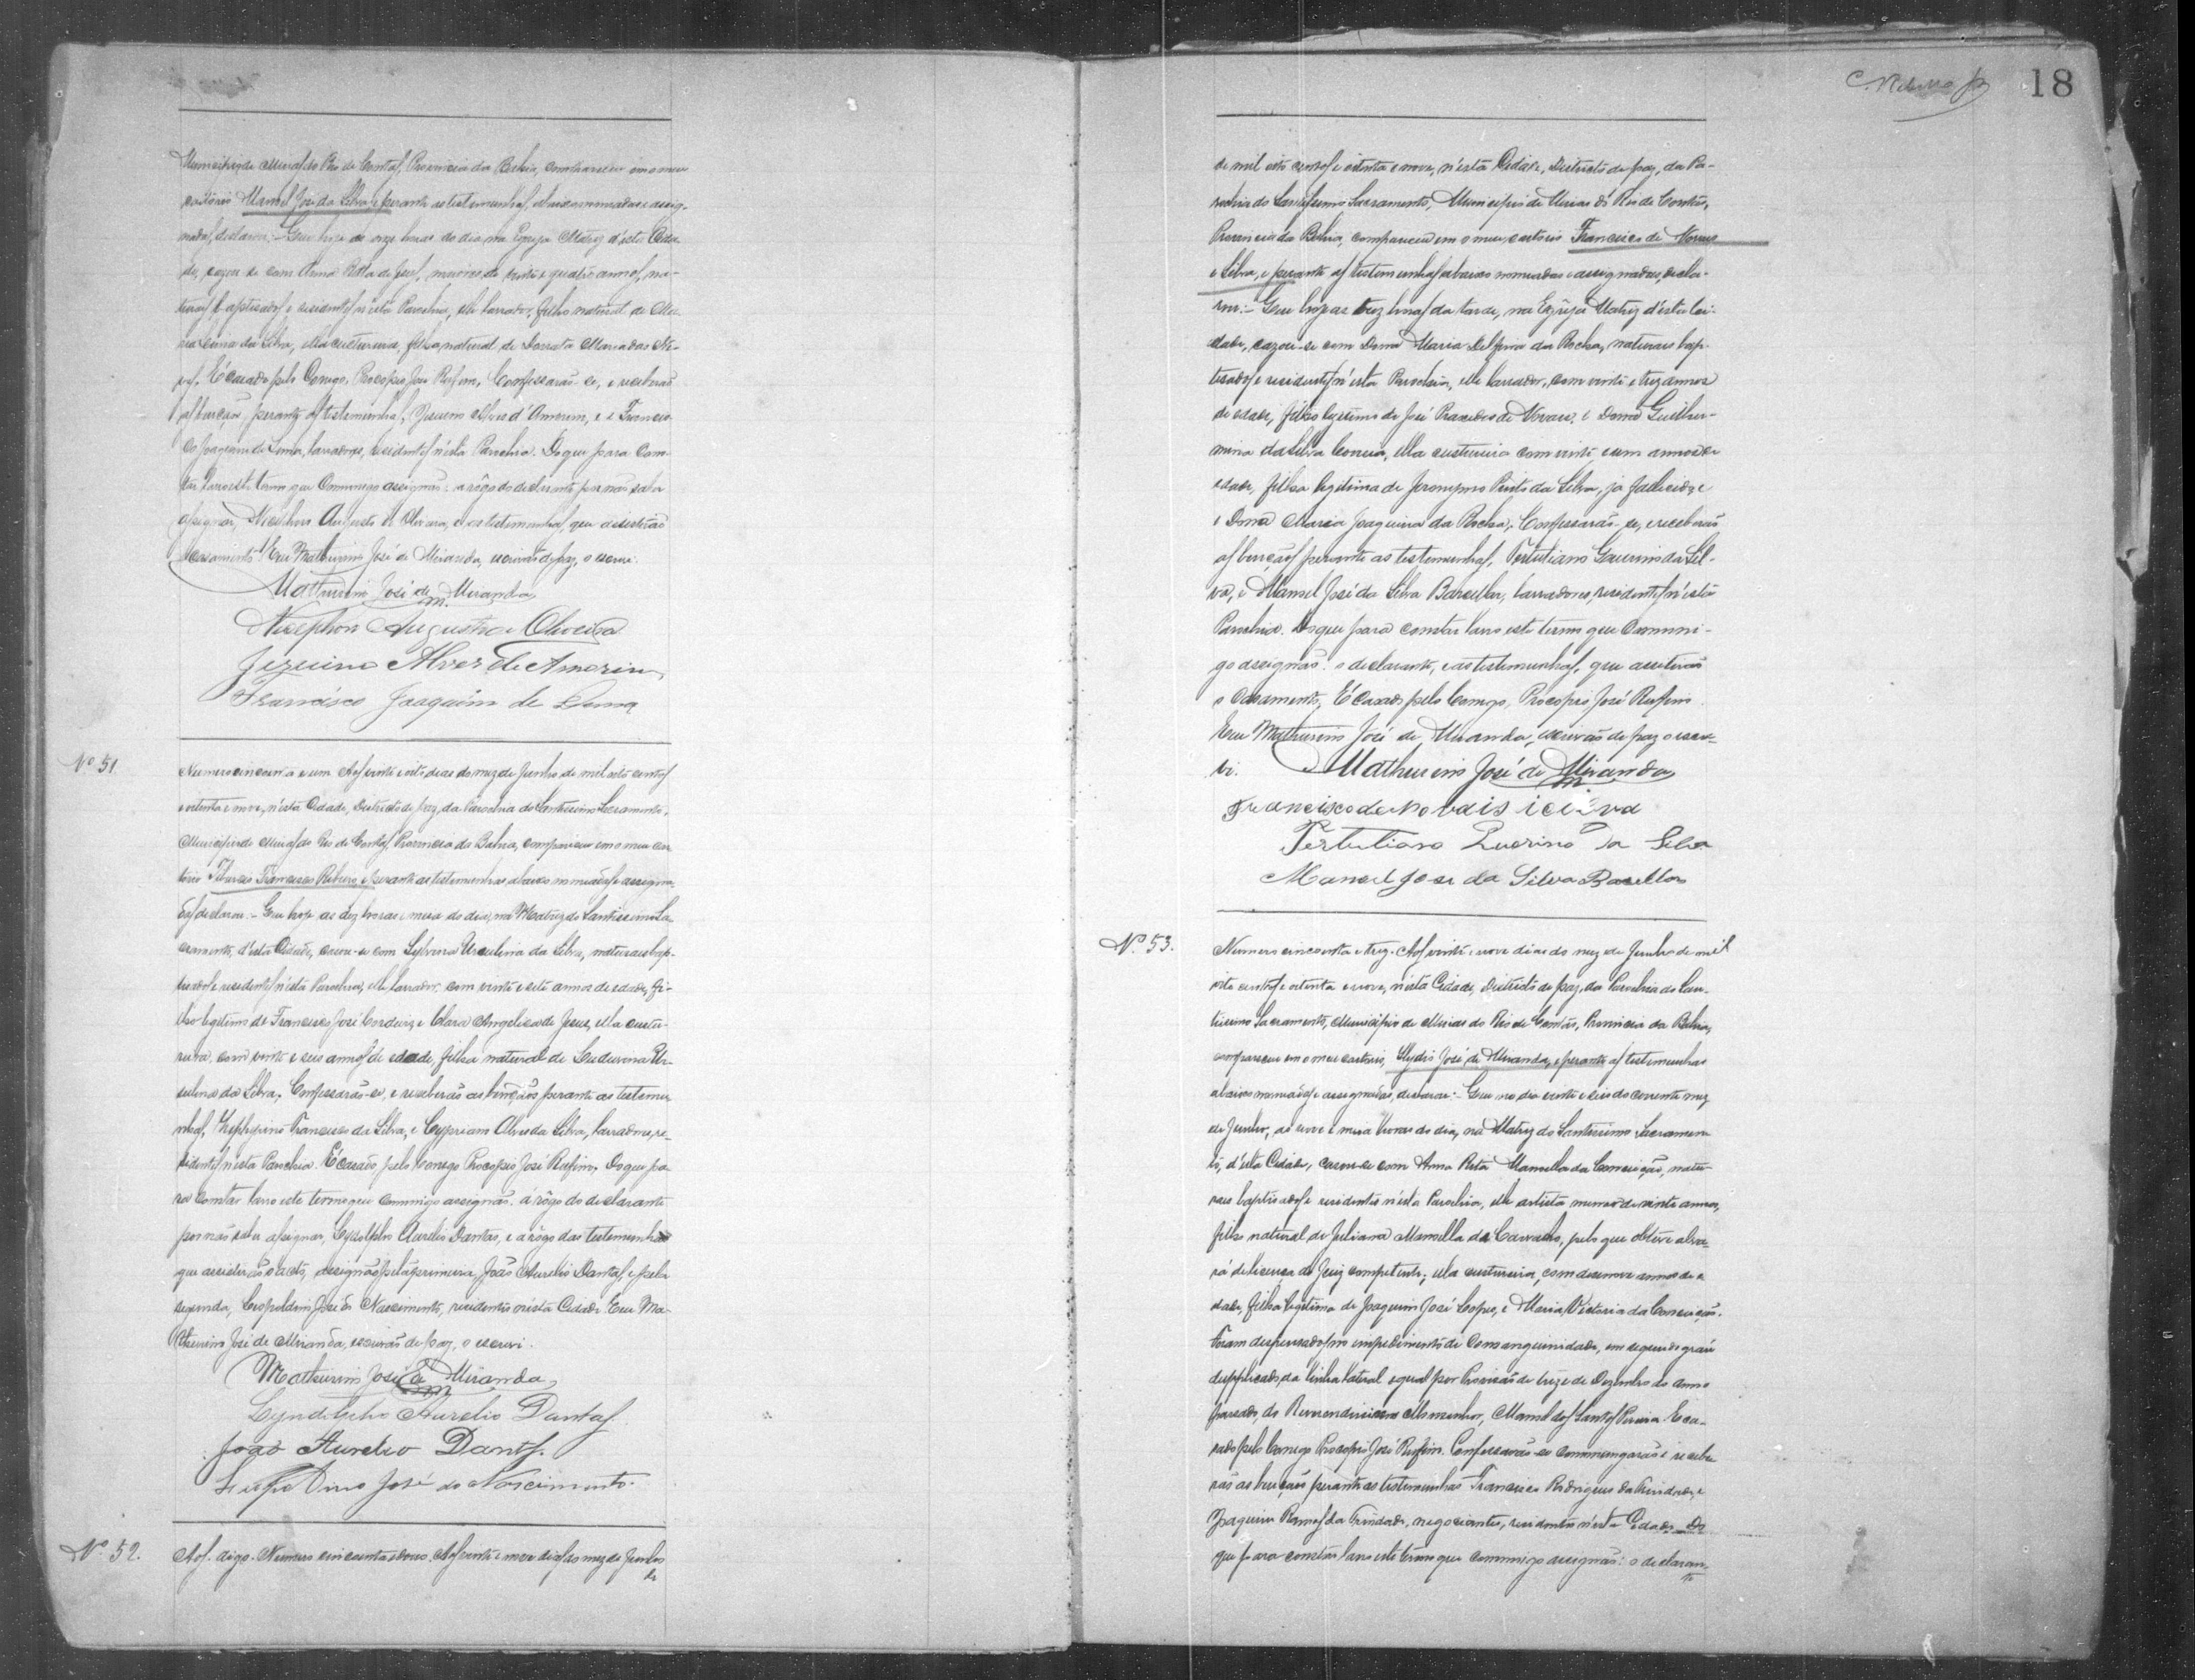 Municipio de Minas do Rio de Contas, Provincia da Bahia, compareceu em o meu
cartorio Manoel José da Silva, e perante as testemunhas abaixo nomeadas e assig-
nadas, declarou: Que hoje as onze horas do dia, na Egreja Matriz d'esta Cida-
de, cazou-se com Anna Rita de Jesus, maiores de vinte e quatro annos, na-
turaes baptisados e residentes n'esta Parochia, elle lavrador, filho natural de Ma-
ria da Silva, ella custureira, filha natural de Maria das Ne-
ves. E' casado pelo Conego, Procopio José Rufino. Confessarão-se, e receberão
as bençãos perante as testemunhas, Jezuino Alves d'Amorim, e Francis-
co Joaquim de Lima, lavradores, residentes n'esta Parochia. Do que para cons-
tar lavro este termo que commigo assignão: a rôgo do declarante por não saber
assignar, Nicephoro Augusto de Oliveira, e as testemunhas, que assistirão
o casamento. Eu Mathurino José de Miranda, escrivão de paz, o escrevi.
Mathurino José de Miranda
Nicephoro Augusto de Oliveira
Jezuino Alves de Amorim
Francisco Joaquim de Lima
Nº 51.
Numero cincoenta e um. Aos vinte e oito dias do mez de Junho de mil oito centos
e oitenta e nove, n'esta Cidade, Districto de paz, da Parochia do Santissimo Sacramento,
Municipio de Minas do Rio de Contas, Provincia da Bahia, compareceu em o meu car-
torio Francisco Ribeiro, e perante as testemunhas abaixo nomeadas e assigna-
das, declarou: Que hoje as dez horas e meia do dia, na Matriz do Santissimo Sa-
cramento, d'esta Cidade, casou-se com Silvina Ursulina da Silva, naturaes bap-
tisados e residentes n'esta Parochia, elle lavrador, com vinte e sete annos de edade, fi-
lho legitimo de Francisco José Cordeiro e Clara Angelica de Jesus, ella custu-
reira, com vinte e seis annos de edade, filha natural de Ur-
sulina da Silva. Confessarão-se, e receberão as bençãos perante as testemu-
nhas, Zepherino Francisco da Silva, e Cypriano Alves da Silva, lavradores, re-
sidentes n'esta Parochia. E' casado pelo Conego Procopio José Rufino. Do que pa-
ra constar lavro este termo que commigo assignão: á rôgo do declarante
por não saber assignar, Lyndolpho Aurelio Dantas, e á rôgo das testemunhas
que assistirão o acto, assignão pela primeira, João Aurelio Dantas e pela
segunda, Leopoldino José do Nascimento, residentes n'esta Cidade. Eu Ma-
thurino José de Miranda, escrivão de paz, o escrevi.
Mathurino José de Miranda
Lyndolpho Aurelio Dantas
João Aurelio Dantas
Leopoldino José do Nascimento
Nº 52.
Aos. digo. Numero cincoenta e dous. Aos vinte e nove dias do mez de Junho
de
18
de mil oito centos e oitenta e nove, n'esta Cidade, Districto de paz, da Pa-
rochia do Santissimo Sacramento, Municipio de Minas do Rio de Contas,
Provincia da Bahia, compareceu em o meu cartorio Francisco de Novaes
e Silva, e perante as testemunhas abaixo nomeadas e assignadas, decla-
rou: Que hoje as trez horas da tarde, na Egreja Matriz d'esta Ci-
dade, cazou-se com Dona Maria Delfina da Rocha, naturaes bap-
tisados e residentes n'esta Parochia, elle lavrador, com vinte e trez annos
de edade, filho legitimo de José Praxedes de Novaes, e Dona Guilher-
mina da Silva Correia, ella custureira com vinte e um annos de
edade, filha legitima de Jeronymo Pinto da Silva, já fallecido, e
e Dona Maria Joaquina da Rocha. Confessarão-se, e receberão
as bençãos perante as testemunhas, Tertuliano Guerino da Sil-
va, e Manoel José da Silva Barcellar, lavradores, residentes n'esta
Parochia. Do que para constar lavro este termo que Commi-
go assignão: o declarante, e as testemunhas, que assistirão
o Casamento. E' Casado pelo Conego, Procopio José Rufino.
Eu Mathurino José de Miranda, escrivão de paz o escre-
vi. Mathurino José de Miranda
Francisco de Novais i ciLva
Tertuliano Querino da Silva
Manoel Jose da Silva Basellar
Nº 53.
Numero cincoenta e trez. Aos vinte e nove dias do mez de Junho de mil
oito centos e oitenta e nove, n'esta Cidade, Districto de paz, da Parochia do San-
tissimo Sacramento, Municipio de Minas do Rio de Contas, Provincia da Bahia,
compareceu em o meu cartorio, José de Miranda, e perante as testemunhas
abaixo nomeadas e assignadas, declarou: Que no dia vinte e seis do corrente mez
de Junho, as nove e meia horas do dia, na Matriz do Santissimo Sacramen-
to, d'esta Cidade, casou-se com Anna Rita Manoella da Conceição, natu-
raes baptisados e residentes n'esta Parochia, elle artista menor de vinte annos,
filho natural de Juliana Manoella de Carvalho, pelo que obteve alva-
rá de licença do Juiz competente; ella custureira, com desenove annos de e-
dade, filha legitima de Joaquim José Lopes, e Maria Victoria da Conceição.
Foram dispensados no impedimento de Consanguinidade, em segundo gráu
dupplicado, da linha lateral egual por Provisão de treze de Dezembro do anno
passado, do Reverendissimo Monsenhor, Manoel dos Santos Pereira. E ca-
sado pelo Conego Procopio José Rufino. Confessarão-se commungarão e recebe-
rão as bençãos perante as testemunhas Francisco Rodrigues da Trindade, e
Joaquim Ramos da Trindade, negociantes, residentes n'esta Cidade. Do
que para constar lavro este termo que commigo assignão: o declaran-
te